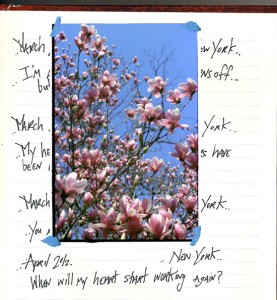 ..March ew York..
..I'm ws off...
bu
..March York..
..My he s have
been
..March York..
..You
..April 2nd. ..New York..
When will my heart start working again?